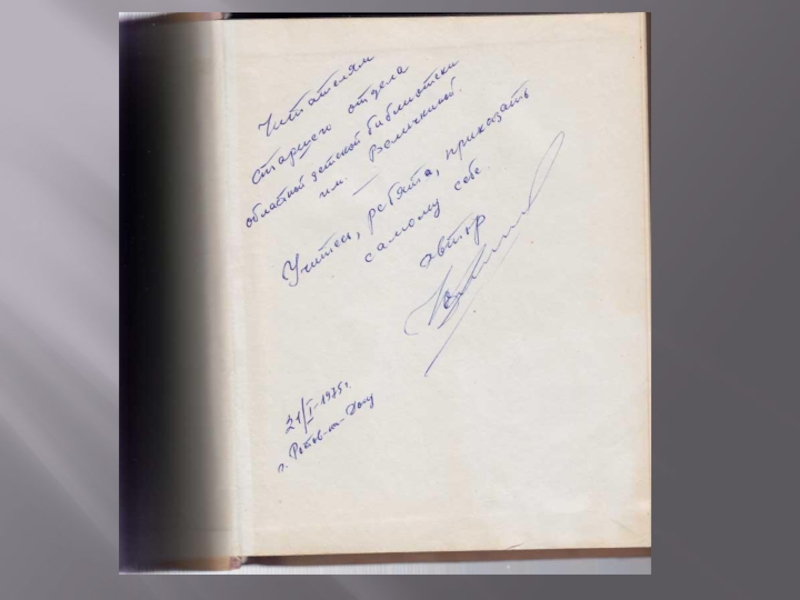 Читателям
старшего отдела
областной детской библиотеки
им. Величкиной.
Учитесь, ребята, приказать
самому себе.
автор
21/I-1975г.
г. Ростов-на-Дону